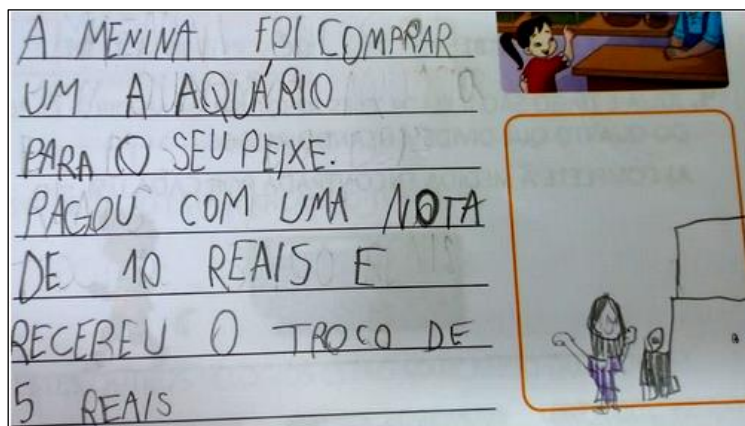 A MENINA FOI COMPRAR
UM A AQUÁRIO
PARA O SEU PEIXE.
PAGOU COM UMA NOTA
DE 10 REAIS E
RECEBEU O TROCO DE
5 REAIS